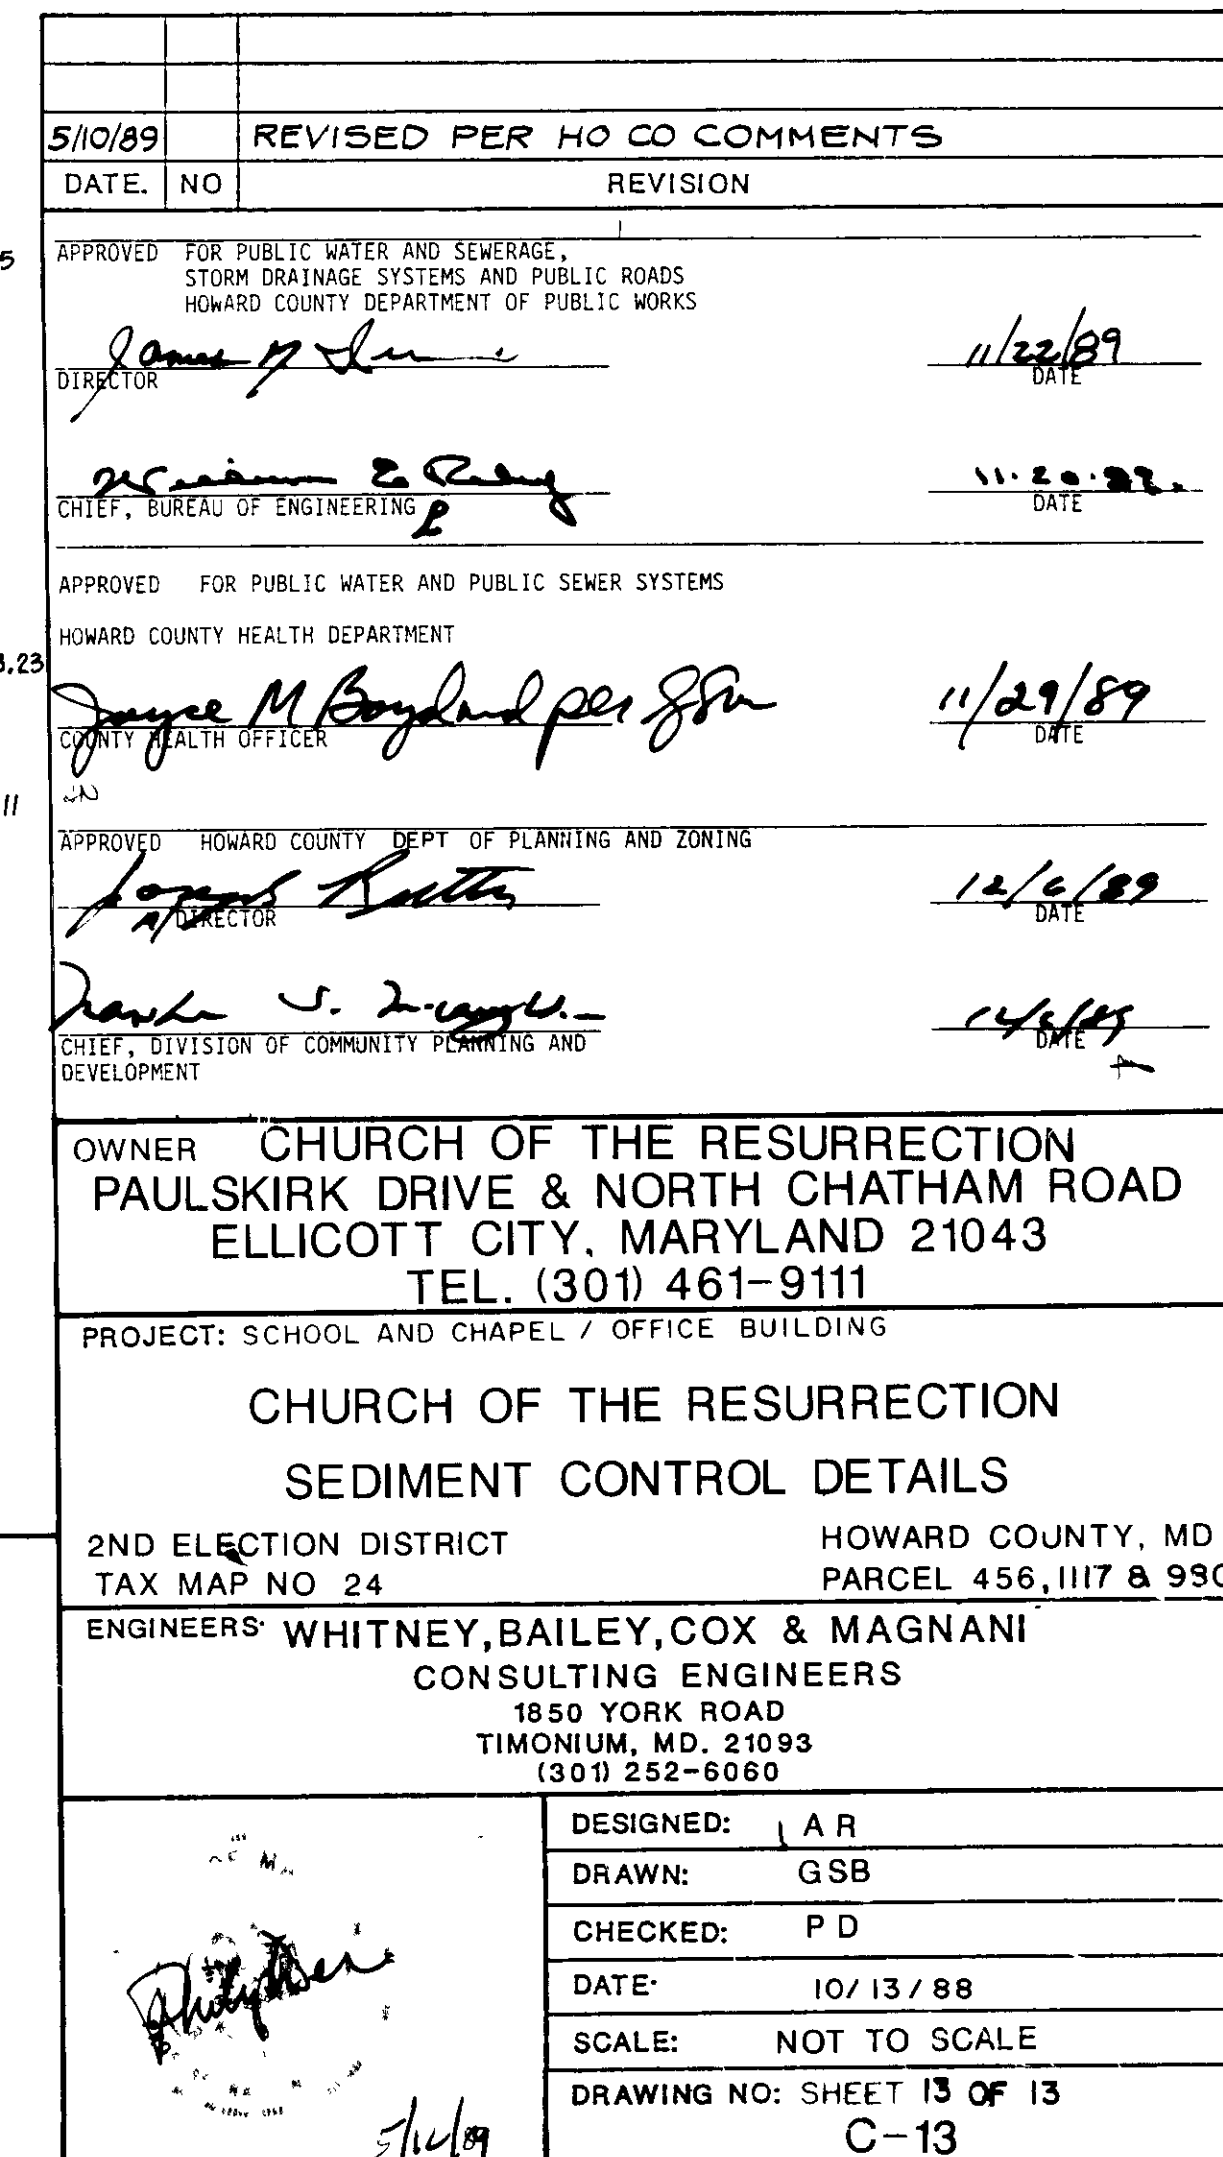 5/10/89 REVISED PER HO CO COMMENTS
DATE. NO REVISION
5
APPROVED FOR PUBLIC WATER AND SEWERAGE,
STORM DRAINAGE SYSTEMS AND PUBLIC ROADS
HOWARD COUNTY DEPARTMENT OF PUBLIC WORKS
James 11/22/89
DIRECTOR DATE
William E. Riley 11.20.89.
CHIEF, BUREAU OF ENGINEERING DATE
APPROVED FOR PUBLIC WATER AND PUBLIC SEWER SYSTEMS
HOWARD COUNTY HEALTH DEPARTMENT
3.23
Joyce M Boyd per 11/29/89
COUNTY HEALTH OFFICER DATE
11
APPROVED HOWARD COUNTY DEPT OF PLANNING AND ZONING
Joseph Rutter 12/6/89
A/DIRECTOR DATE
12/6/89
CHIEF, DIVISION OF COMMUNITY PLANNING AND DATE
DEVELOPMENT
OWNER CHURCH OF THE RESURRECTION
PAULSKIRK DRIVE & NORTH CHATHAM ROAD
ELLICOTT CITY, MARYLAND 21043
TEL. (301) 461-9111
PROJECT: SCHOOL AND CHAPEL / OFFICE BUILDING
CHURCH OF THE RESURRECTION
SEDIMENT CONTROL DETAILS
2ND ELECTION DISTRICT HOWARD COUNTY, MD
TAX MAP NO 24 PARCEL 456, 1117 & 930
ENGINEERS: WHITNEY, BAILEY, COX & MAGNANI
CONSULTING ENGINEERS
1850 YORK ROAD
TIMONIUM, MD. 21093
(301) 252-6060
DESIGNED: AR
DRAWN: GSB
CHECKED: PD
DATE: 10/13/88
SCALE: NOT TO SCALE
DRAWING NO: SHEET 13 OF 13
C-13
5/12/89